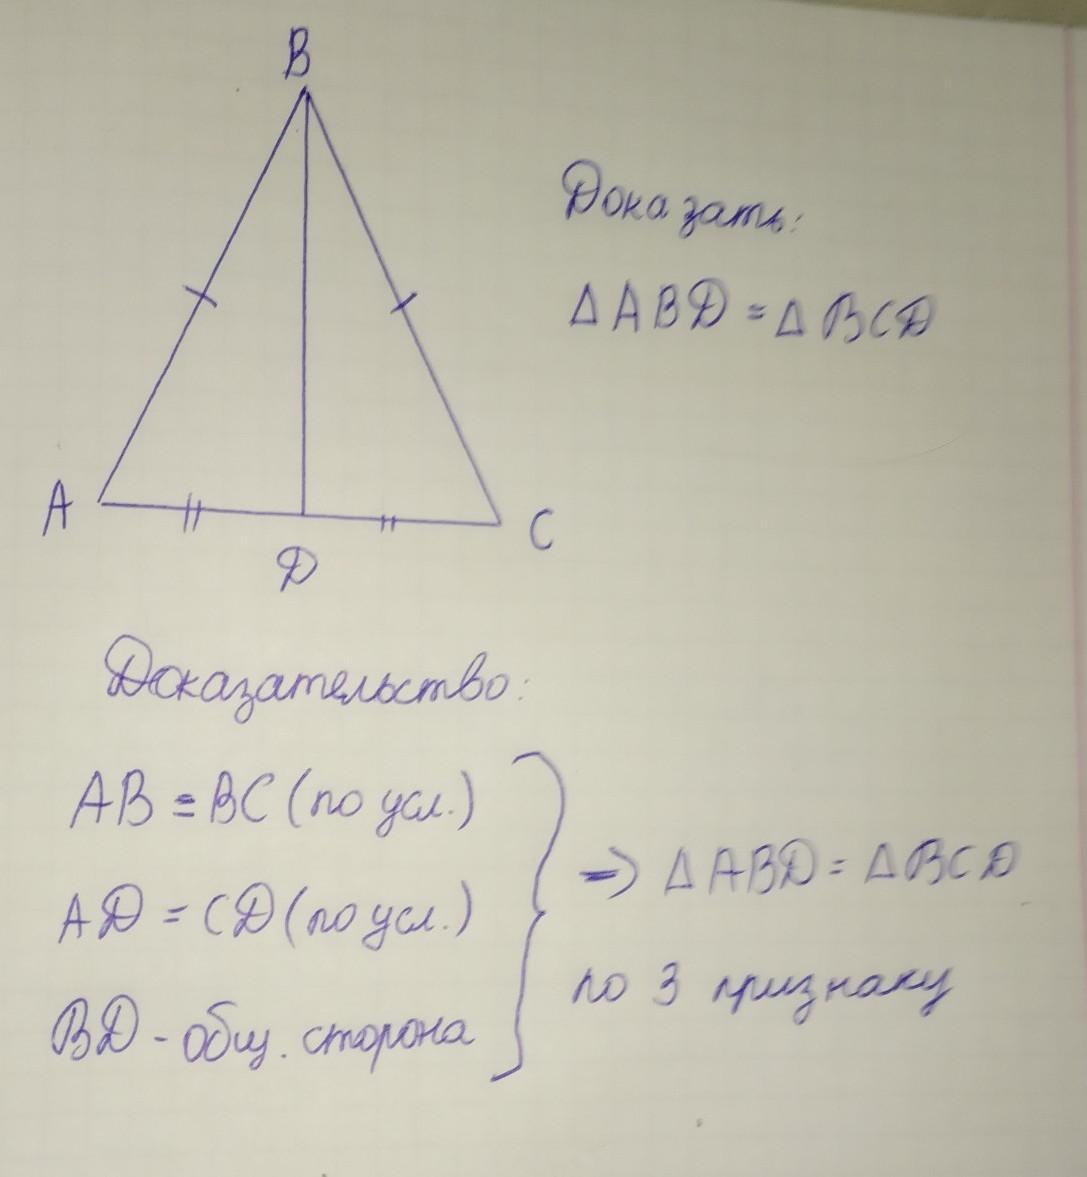 B
Доказать:
△ABD = △BCD
A
C
D
Доказательство:
AB = BC (по усл.)
AD = CD (по усл.)
BD - общ. сторона
⇒ △ABD = △BCD
по 3 признаку